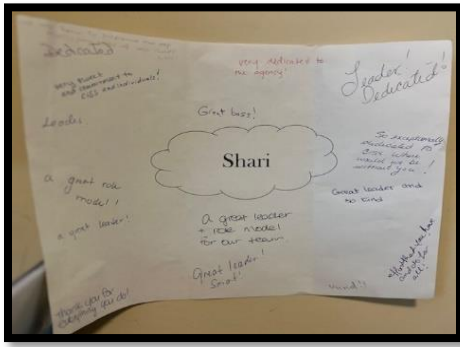 Dedicated
very dedicated to
the agency!
Leader!
Dedicated!
and commitment to
and individuals!
Leader
Great boss!
Shari
So exceptionally
dedicated to
where
would we be
without you!
a great role
model!
Great leader and
so kind
a great leader!
A great leader
+ role model
for our team
Great leader!
Smart
Thank you for
everything you do!
Kind!
all!